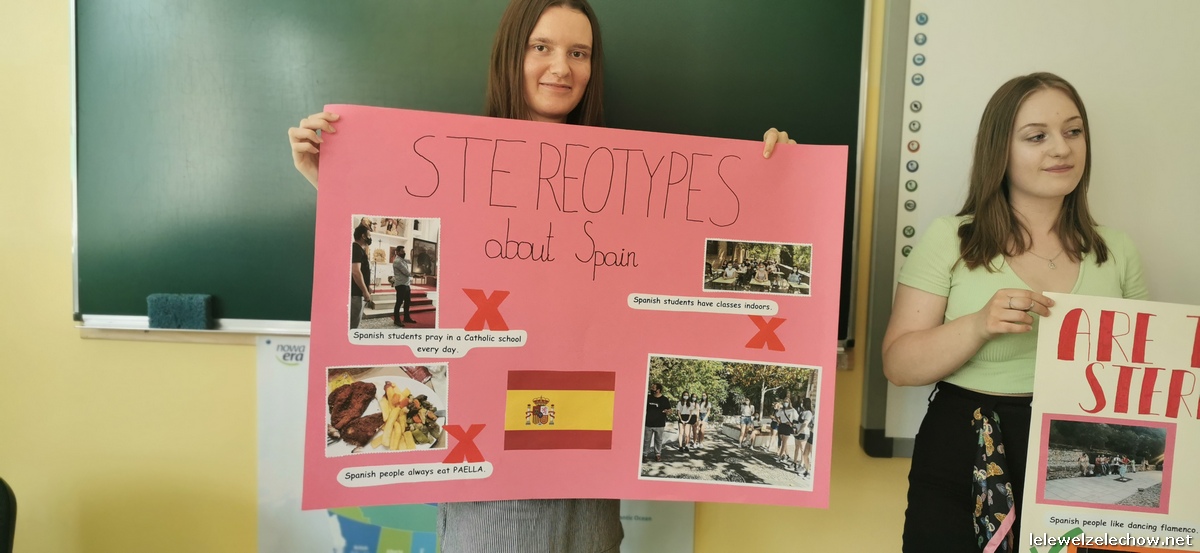 STEREOTYPES
about Spain
Spanish students pray in a Catholic school
every day.
X
Spanish students have classes indoors.
X
Spanish people always eat PAELLA.
X
nowa
era
ARE T
STER
Spanish people like dancing flamenco
lelewelzelechow.net